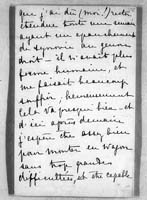 que j'ai dû (moi!) rester
étendue toute une semaine
ayant un épanchement
de synovie au genou
droit — il n'avait plus
forme humaine, et
me faisait beaucoup
souffrir, heureusement
cela va presque bien — et
d'ici après demain
j'espère être assez bien
pour monter en wagon
sans trop grandes
difficultés, et être capable